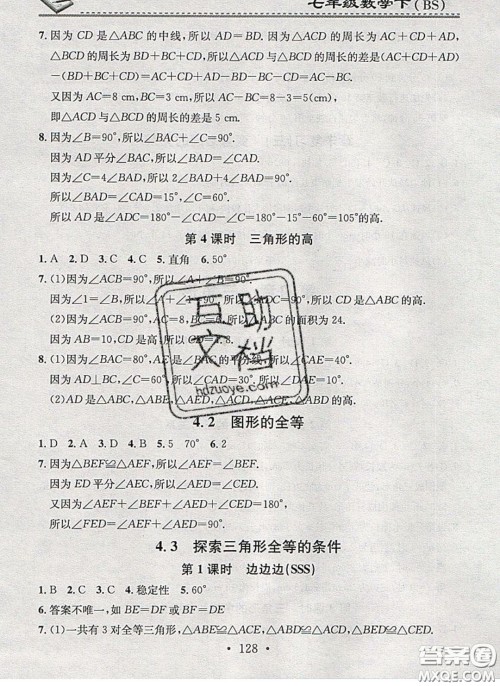 七年级数学下(BS)
7.因为CD是△ABC的中线,所以AD=BD.因为△ACD的周长为AC+CD+AD,
△BCD的周长为BD+BC+CD,所以△ACD与△BCD的周长的差是(AC+CD+
AD)-(BD+BC+CD)=AC+CD+AD-BD-BC-CD=AC-BC.
又因为AC=8 cm,BC=3 cm,所以AC-BC=8-3=5(cm),
即△ACD与△BCD的周长的差是5 cm.
8.因为∠B=90°,所以∠BAC+∠C=90°.
因为AD平分∠BAC,所以∠BAD=∠CAD.
因为∠C=4∠BAD,所以2∠BAD+4∠BAD=90°.
所以∠BAD=∠CAD=15°,∠C=60°.
所以∠ADC=180°-∠CAD-∠C=180°-15°-60°=105°
第4课时 三角形的高
1.A 2.D 3.C 4.C 5.直角 6.50°
7.(1)因为∠ACB=90°,所以∠A+∠B=90°.
所以∠ADC=90°,所以CD是△ABC的高.
(2)因为∠ACB=90°,AC=8,所以△ABC的面积为24.
因为AB=10,CD是高,所以CD=4.8.
8.(1)因为∠BAC=80°,AE是∠BAC的平分线,所以∠CAE=40°.
因为AD⊥BC,∠C=60°,所以∠CAD=30°,所以∠DAE=10°.
(2)AD是△ABE,△ABD,△ABC,△ADE,△ADC,△ACE的高.
互助文档
hdzuoye.com
4.2 图形的全等
1.D 2.A 3.D 4.B 5.5 70° 6.2
7.因为△BEF≌△AEF,所以∠AEF=∠BEF.
因为△AED≌△CED,所以∠AED=∠CED.
又因为∠AEF+∠BEF+∠AED+∠CED=180°,
所以∠FED=∠AEF+∠AED=90°.
4.3 探索三角形全等的条件
第1课时 边边边(SSS)
1.B 2.C 3.C 4.稳定性 5.60°
6.答案不唯一,如BE=DF或BF=DE
7.(1)一共有3对全等三角形,△ABE≌△ACE,△ABD≌△ACD,△BDE≌△CDE.
·128·
答案圈
MXQE.COM